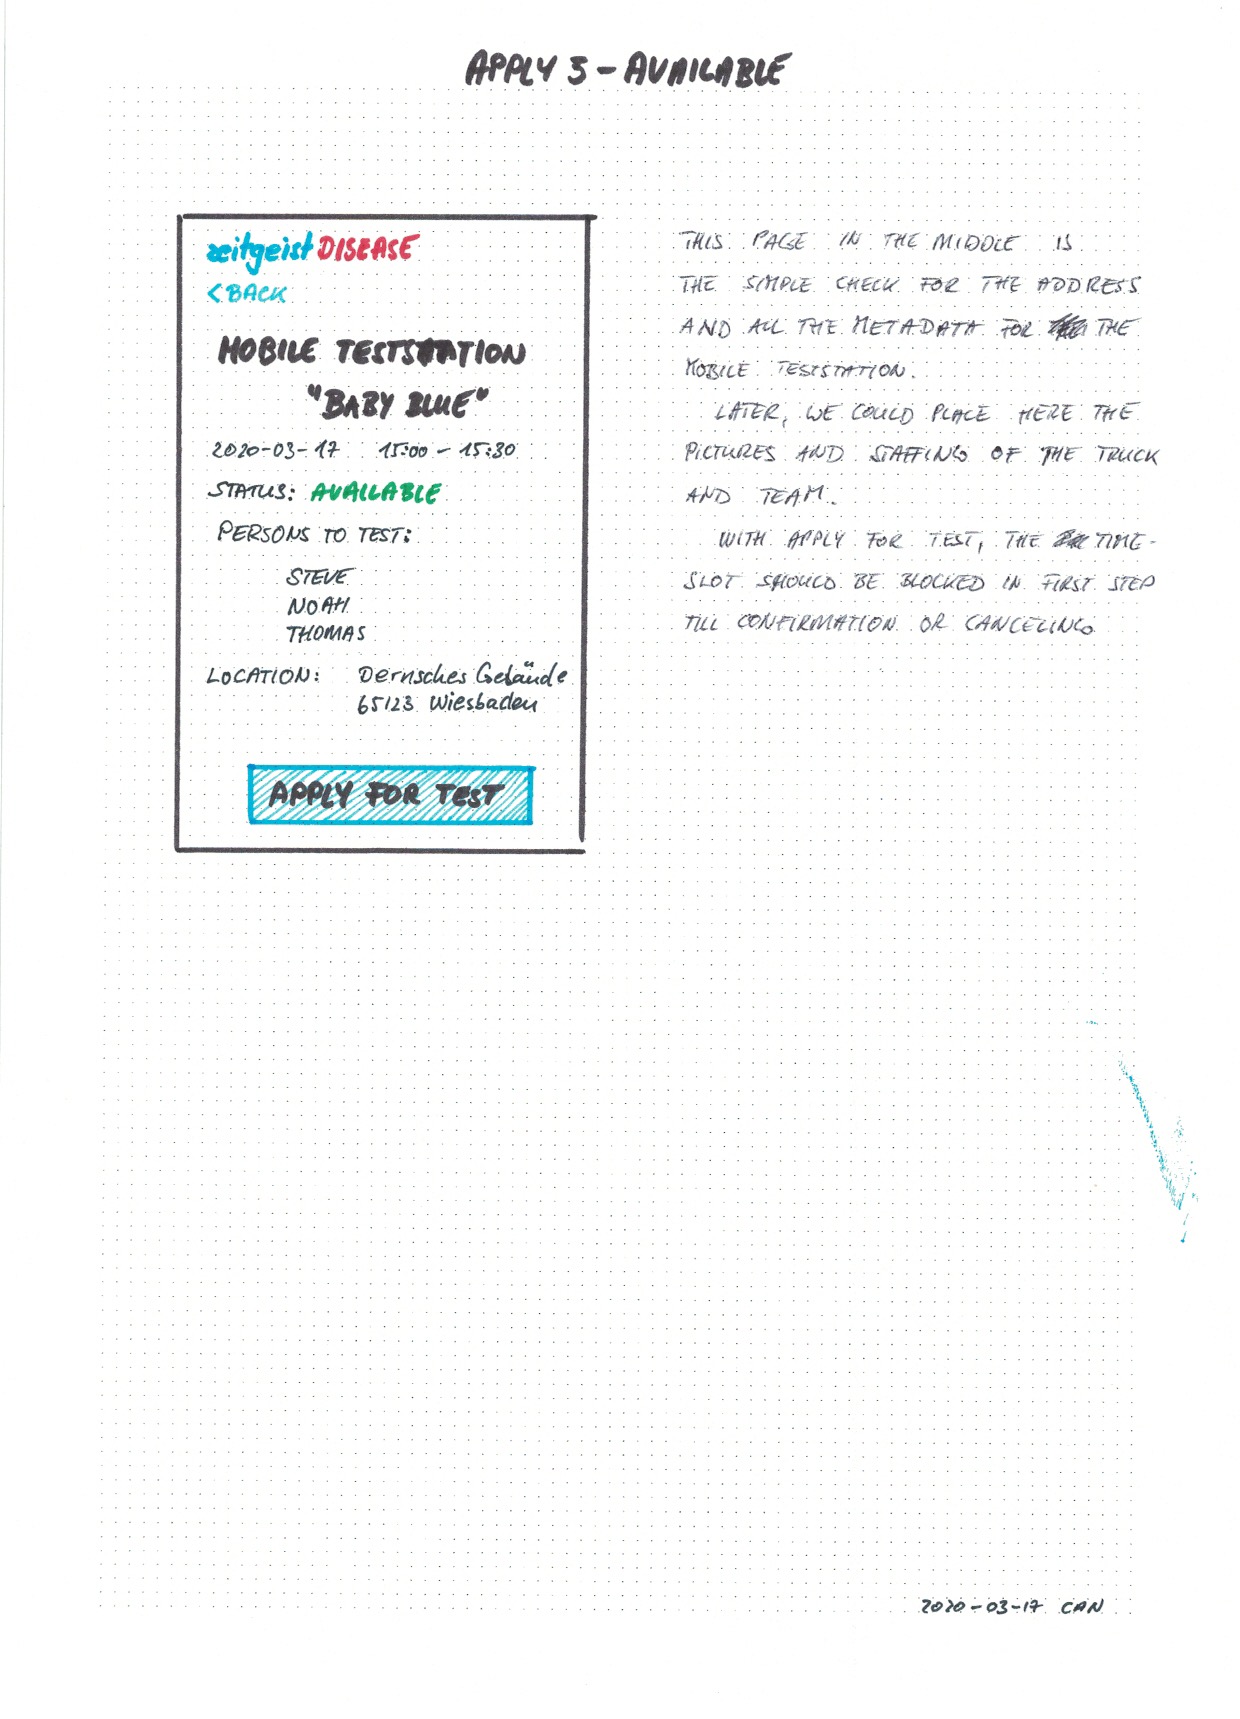 APPLY 3 - AVAILABLE
zeitgeist DISEASE
< BACK
MOBILE TESTSTATION
"BABY BLUE"
2020-03-17 15:00 - 15:30
STATUS: AVAILABLE
PERSONS TO TEST:
STEVE
NOAH
THOMAS
LOCATION: Dernsches Gelände
65123 Wiesbaden
APPLY FOR TEST
THIS PAGE IN THE MIDDLE IS
THE SIMPLE CHECK FOR THE ADDRESS
AND ALL THE METADATA FOR THE
MOBILE TESTSTATION.
LATER, WE COULD PLACE HERE THE
PICTURES AND STAFFING OF THE TRUCK
AND TEAM.
WITH APPLY FOR TEST, THE TIME-
SLOT SHOULD BE BLOCKED IN FIRST STEP
TILL CONFIRMATION OR CANCELING
2020-03-17 CAN